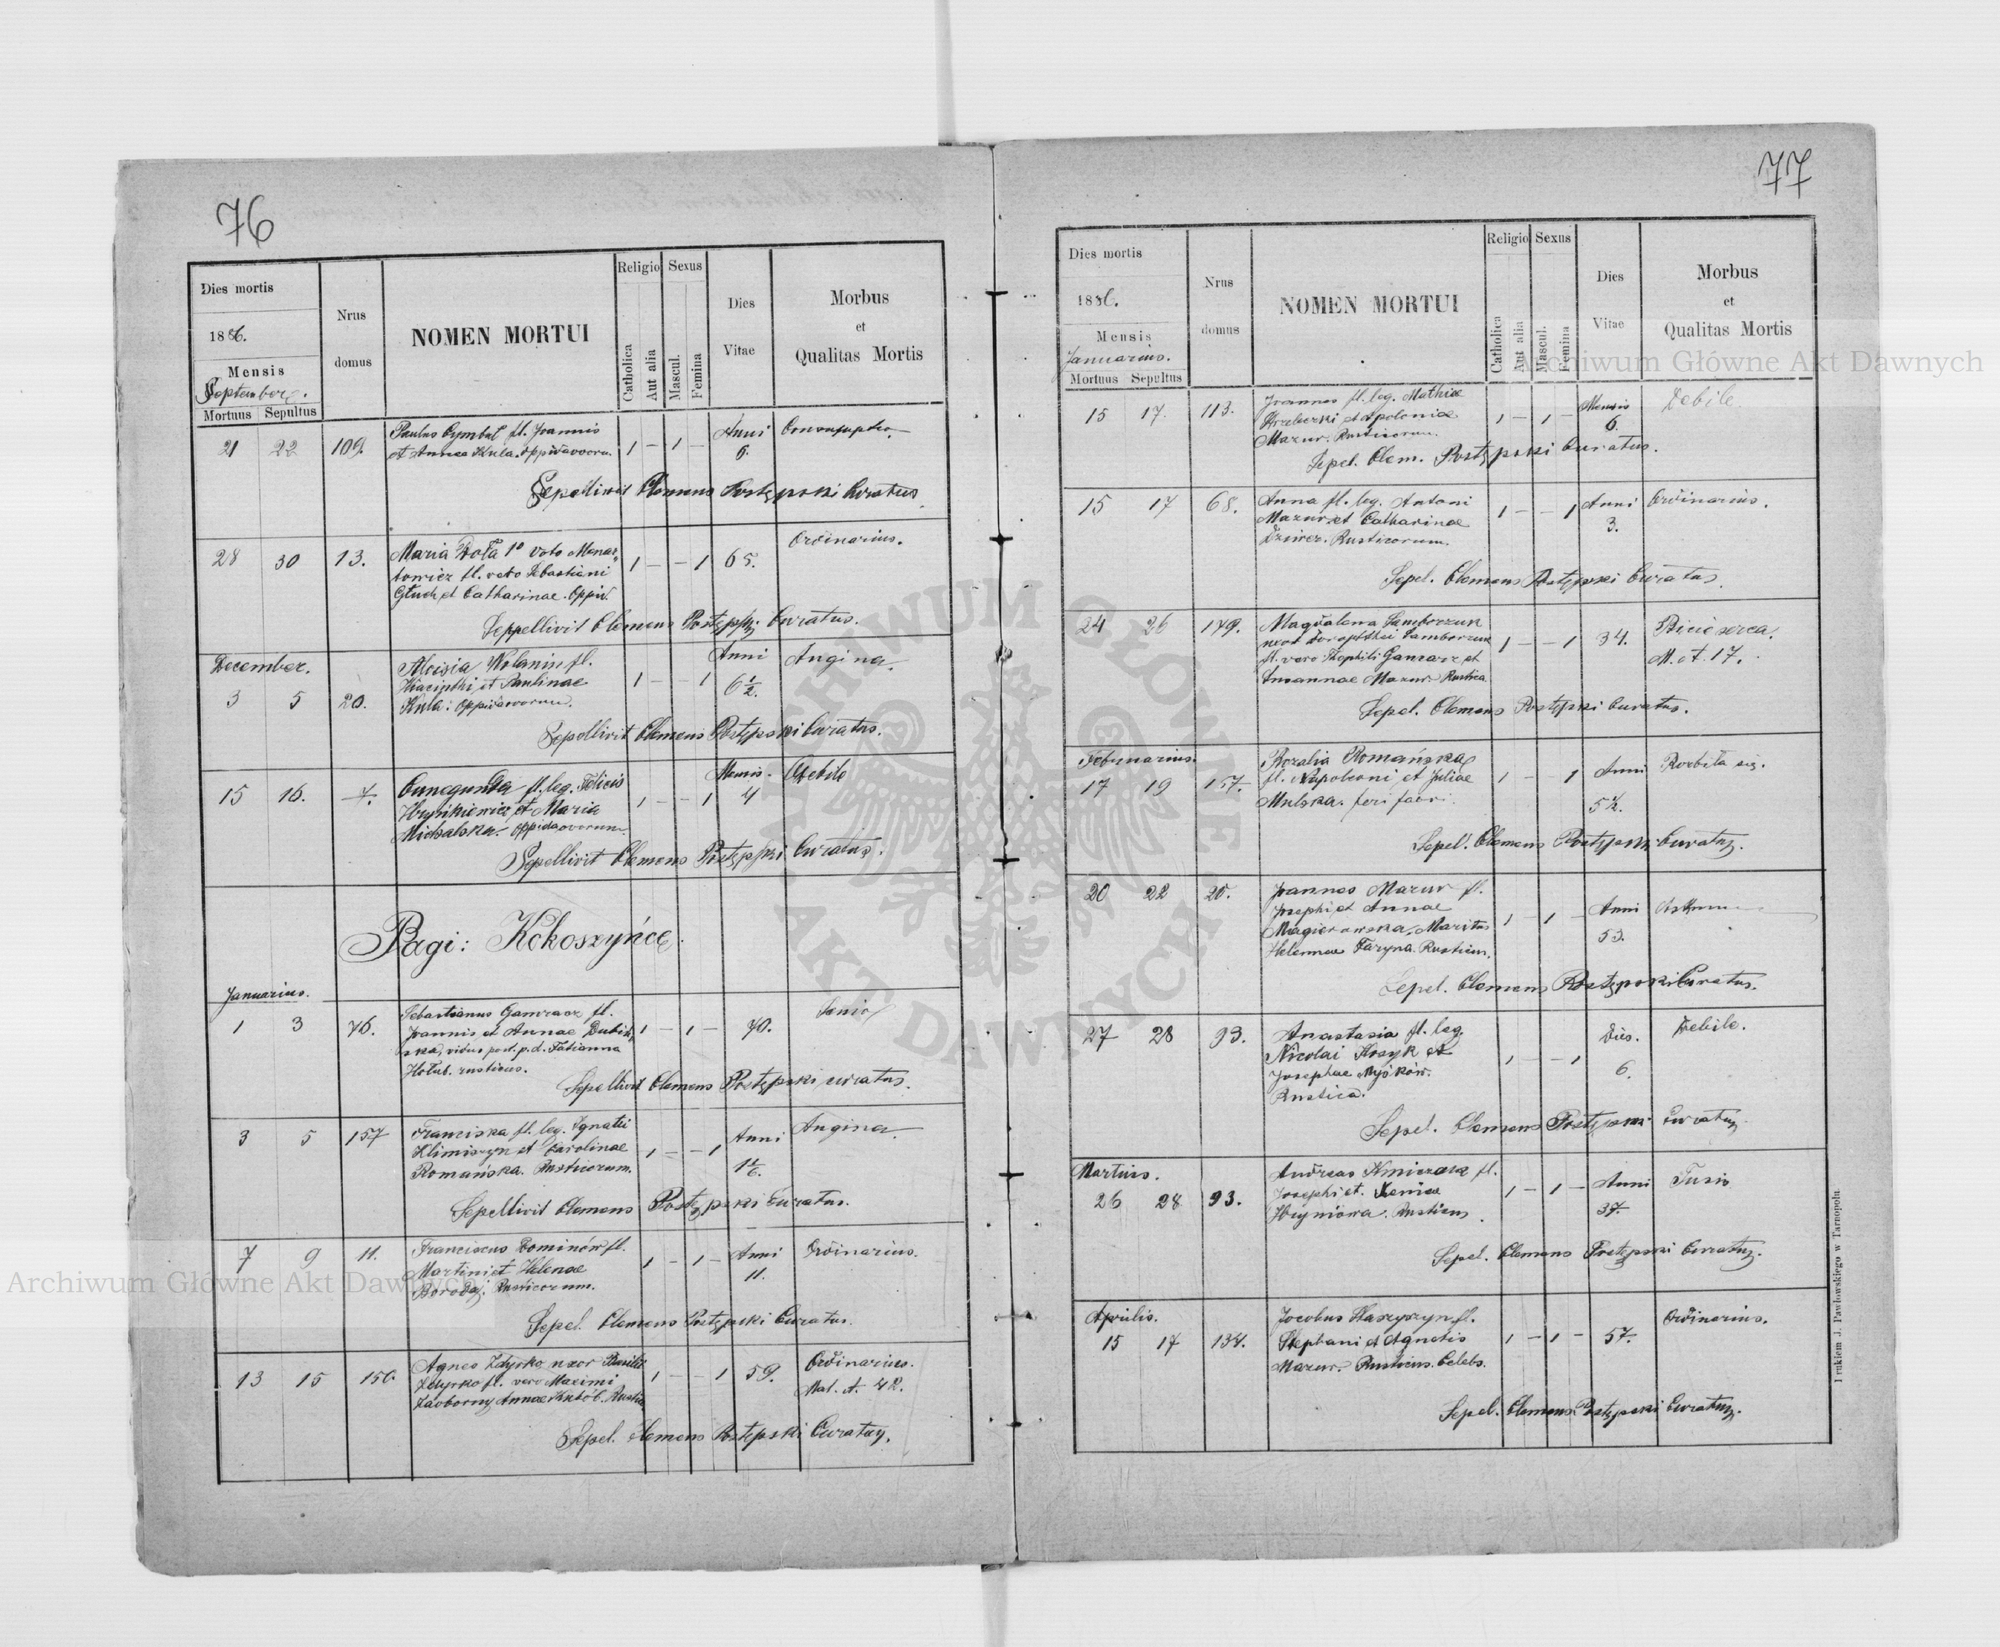 76
Dies mortis
1886.
Mensis
September.
Mortuus Sepultus
Nrus
domus
NOMEN MORTUI
Religio
Catholica
Aut alia
Sexus
Mascul.
Femina
Dies
Vitae
Morbus
et
Qualitas Mortis
21 22 109. Paulus Cymbal fl. Joannis 1 - 1 - Anni
et Annae Kula. Oppidanorum. 6.
Sepellivit Clemens Postępski Curatus
28 30 13. Maria 1º voto 1 - - 1 65. Ordinarius.
fl. vero Sebastiani
Głuch et Catharinae. Oppid.
Sepellivit Clemens Postępski Curatus.
December.
3 5 20. Aloisia Wolanin fl. 1 - - 1 Anni 6 1/2. Angina.
et Paulinae
Kula: Oppidanorum.
Sepellivit Clemens Postępski Curatus.
15 16. 7. Cunegunda fl. leg. Felicis 1 - - 1 Mensis 4 Debile
Hryńkiewicz et Maria
Michalska. Oppidanorum.
Sepellivit Clemens Postępski Curatus.
Pagi: Kokoszyńce.
Januarius.
1 3 76. Sebastianus Gamracz fl. 1 - 1 - 70.
Joannis et Annae
ska, vidus post. p. d. Tatianna
Hołub. rusticus.
Sepellivit Clemens Postępski curatus.
3 5 157 Franciska fl. leg. Ignatii 1 - - 1 Anni Angina.
Klimiszyn et Carolinae
Romańska. Rusticorum.
Sepellivit Clemens Postępski Curatus.
7 9 11. Franciscus Dominów fl. 1 - 1 - Anni 11. Ordinarius.
Martini et Helenae
Borodaj. Rusticorum.
Sepel. Clemens Postępski Curatus.
13 15 150. Agnes Zdyrko uxor Basilii 1 - - 1 59. Ordinarius.
Zdyrko fl. vero Maximi
Annae
Sepel. Clemens Postępski Curatus.
77
Dies mortis
1886.
Mensis
Januarius.
Mortuus Sepultus
Nrus
domus
NOMEN MORTUI
Religio
Catholica
Aut alia
Sexus
Mascul.
Femina
Dies
Vitae
Morbus
et
Qualitas Mortis
15 17. 113. Joannes fl. leg. Mathiae 1 - 1 - Mensis 6. Debile
et Apoloniae
Mazur. Rusticorum.
Sepel. Clem. Postępski Curatus.
15 17 68. Anna fl. leg. Antoni 1 - - 1 Anni 3. Ordinarius.
Mazur et Catharinae
Rusticorum.
Sepel. Clemens Postępski Curatus.
24 26 149. Magdalena Samborzuk 1 - - 1 34. Bicie serca.
uxor Samborzuk M. et. 17.
fl. vero Theophili Gamracz et
Mazur. Rustica.
Sepel. Clemens Postępski Curatus.
Februarius.
17 19 157. Rozalia Romańska 1 - - 1 Anni Rozbiła się.
fl. Napoleoni et Juliae
Mulska. feri fabri.
Sepel. Clemens Postępski Curatus.
20 22 20. Joannes Mazur fl. 1 - 1 - Anni 53.
Josephi et Annae
Magierowska. Maritus
Helennae Faryna. Rusticus.
Sepel. Clemens Postępski Curatus.
27 28 93. Anastasia fl. leg. 1 - - 1 Dies. 6. Debile.
Nicolai et
Josephae
Rustica.
Sepel. Clemens Postępski Curatus.
Martius.
26 28 93. Andreas fl. 1 - 1 - Anni 37. Tusis
Josephi et Xeniae
Hryniowa. Rusticus.
Sepel. Clemens Postępski Curatus.
Aprilis.
15 17 134. Jacobus Haszyszyn fl. 1 - 1 - 57. Ordinarius.
Stephani et Agnetis
Mazur. Rusticus. Celebs.
Sepel. Clemens Postępski Curatus.
Drukiem J. Pawłowskiego w Tarnopolu.
Archiwum Główne Akt Dawnych
Archiwum Główne Akt Dawnych
ARCHIWUM GŁÓWNE
AKT DAWNYCH